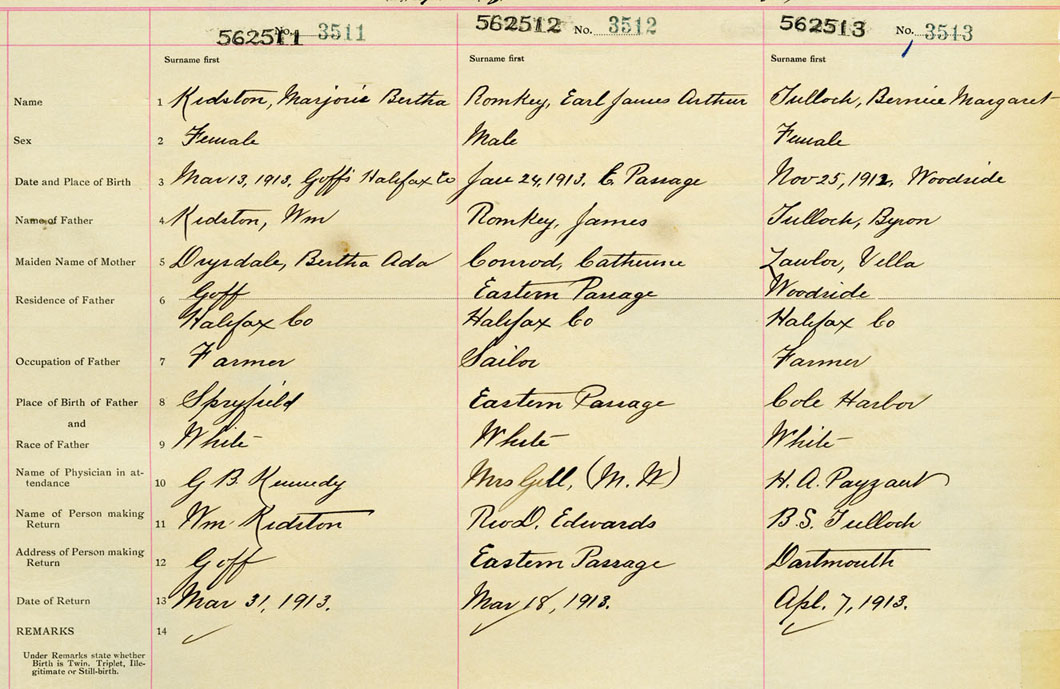 562511 No. 3511 562512 No. 3512 562513 No. 3513
Surname first Surname first Surname first
Name 1 Kidston, Marjorie Bertha Romkey, Earl James Arthur Tulloch, Bernice Margaret
Sex 2 Female Male Female
Date and Place of Birth 3 Mar 13, 1913, Goffs Halifax Co Jan 24, 1913. E. Passage Nov 25, 1912, Woodside
Name of Father 4 Kidston, Wm Romkey, James Tulloch, Byron
Maiden Name of Mother 5 Drysdale, Bertha Ada Conrod, Catherine Lawlor, Vella
Residence of Father 6 Goff Eastern Passage Woodside
Halifax Co Halifax Co Halifax Co
Occupation of Father 7 Farmer Sailor Farmer
Place of Birth of Father 8 Spryfield Eastern Passage Cole Harbor
and
Race of Father 9 White White White
Name of Physician in at-
tendance 10 G B Kennedy Mrs Gell, (M. W) H. A. Payzant
Name of Person making
Return 11 Wm Kidston D. Edwards B. S. Tulloch
Address of Person making
Return 12 Goff Eastern Passage Dartmouth
Date of Return 13 Mar 31, 1913. 18, 1913. Apl. 7, 1913.
REMARKS 14
Under Remarks state whether
Birth is Twin, Triplet, Ille-
gitimate or Still-birth.